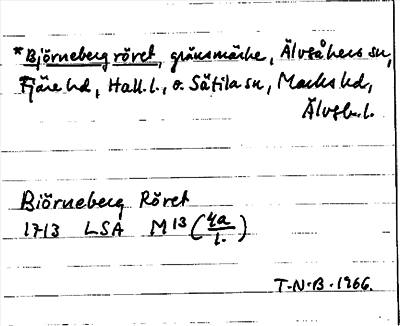 *Björneberg röret, gränsmärke, Älvsåkers sn,
Fjäre hd, Hall. l., o. Sätila sn, Marks hd,
Älvsb. l.
Biörneberg Röret
1713 LSA M 13 (4a/1.)
T-N-B. 1966.